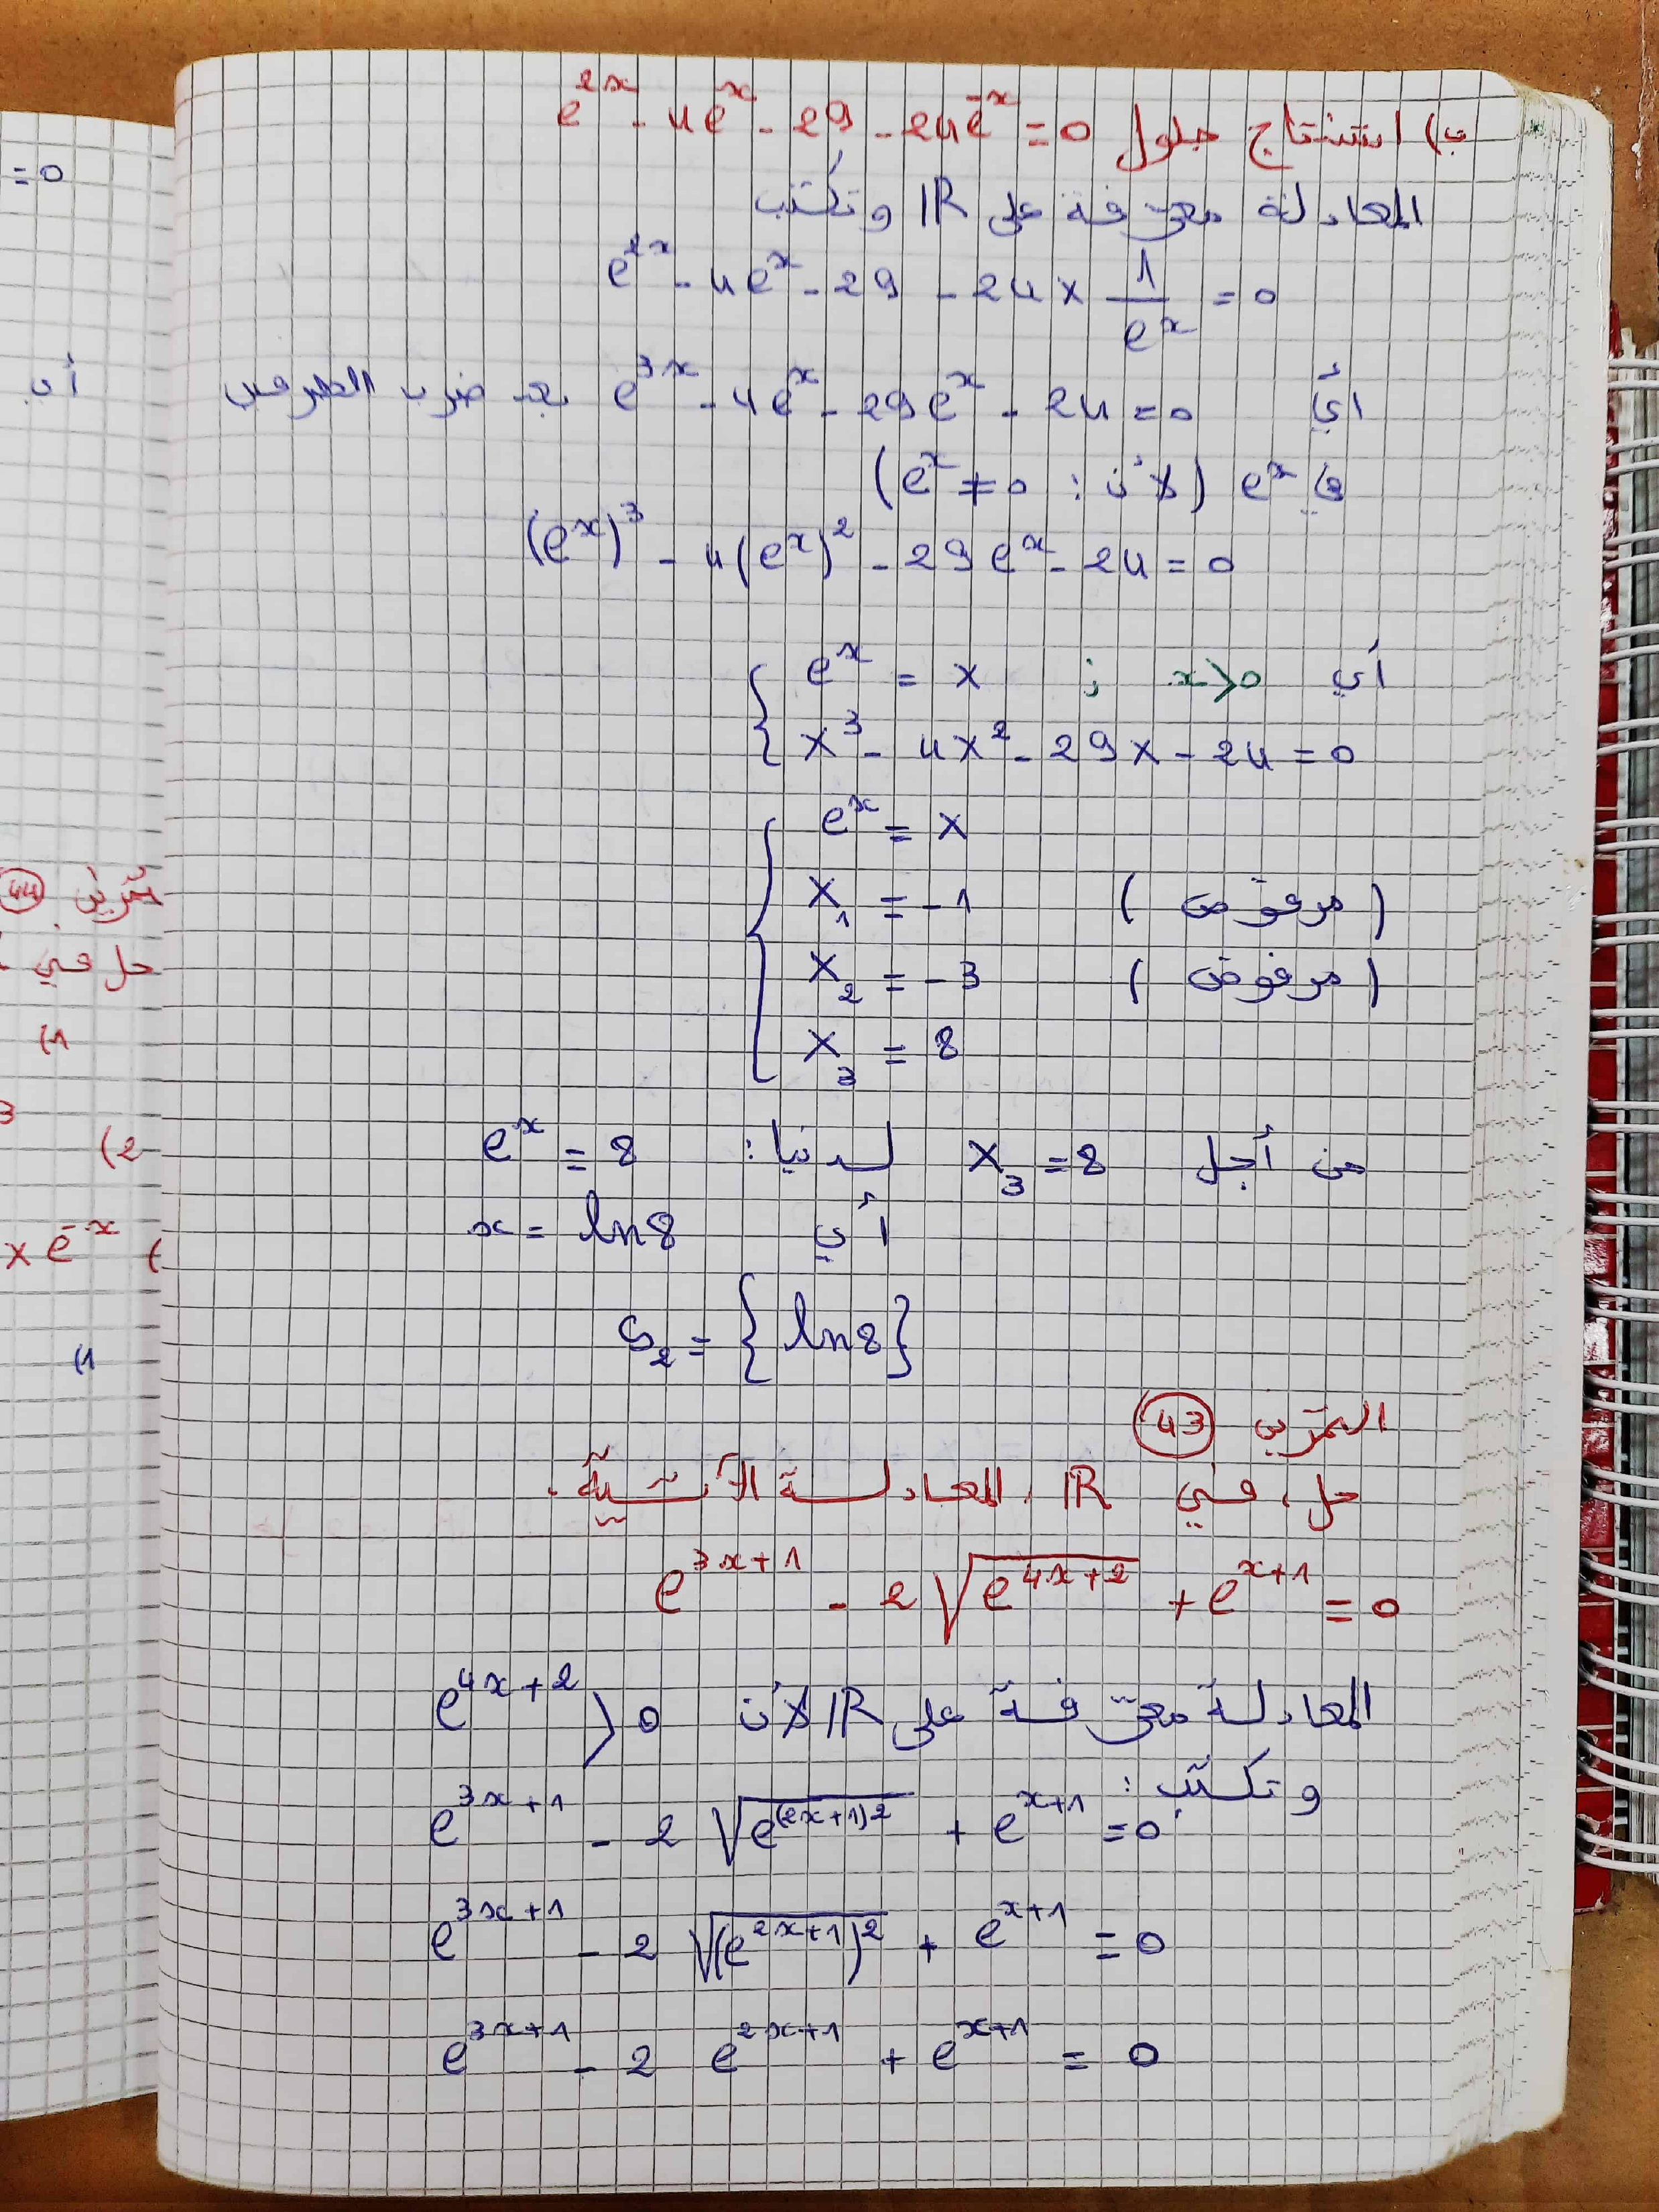 ب) استنتاج حلول e^{2x} - 4e^{x} - 29 - 24e^{-x} = 0
المعادلة معرفة على IR وتكتب
e^{2x} - 4e^{x} - 29 - 24 × \frac{1}{e^{x}} = 0
أي e^{3x} - 4e^{x} - 29e^{x} - 24 = 0 بعد ضرب الطرفين
في e^{x} (لأن : e^{x} ≠ 0)
(e^{x})^{3} - 4(e^{x})^{2} - 29e^{x} - 24 = 0
أي { e^{x} = X ; x > 0
X^{3} - 4X^{2} - 29X - 24 = 0
{ e^{x} = X
X_{1} = -1 (مرفوض)
X_{2} = -3 (مرفوض)
X_{3} = 8
من أجل X_{3} = 8 لدينا : e^{x} = 8
أي x = ln8
S_{2} = {ln8}
التمرين 43
حل، في IR، المعادلة الآتية.
e^{3x+1} - 2\sqrt{e^{4x+2}} + e^{x+1} = 0
المعادلة معرفة على IR لأن e^{4x+2} > 0
وتكتب :
e^{3x+1} - 2\sqrt{e^{(2x+1)2}} + e^{x+1} = 0
e^{3x+1} - 2\sqrt{(e^{2x+1})^{2}} + e^{x+1} = 0
e^{3x+1} - 2 e^{2x+1} + e^{x+1} = 0
= 0
أي
تمرين 44
حل في
1)
3
2)
× e^{-x} (
1)